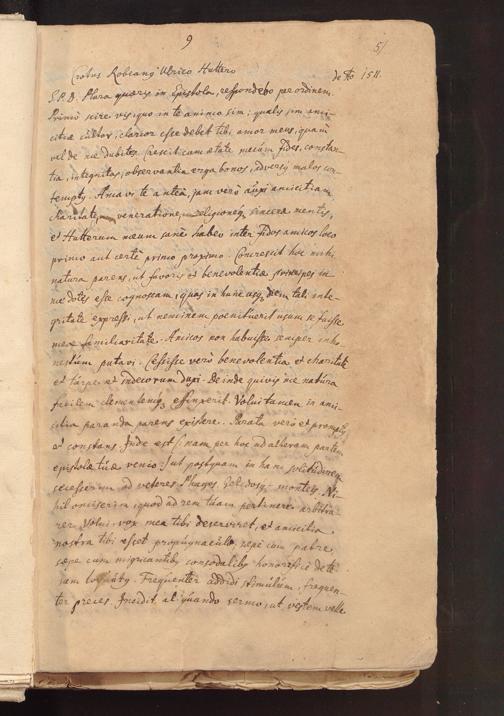 9
51
Crotus Robeang Ulrico Huttero
de Ao 1511.
S. P. D. Plura quaeris in Epistola, respondebo per ordinem.
Primo scire vis quo in te animo sim; qualis sim ami-
citiae cultor, clarior esse debet tibi amor meus, quam
vel de me dubites. Crescit cum aetate mecum fides, constan-
tia, integritas, observantia erga bonos, adversy malos con-
tempty. Amavi te antea, jam vero amicitiam
charitatem, veneratione, religioney sincera mentis,
et Hutterum meum sane habeo inter fidos amicos loco
primo aut certe primo proximo. Concrescit hoc mihi
natura parens, ut favoris et benevolentiae principes in
me dotes esse cognoscam, quas in hunc usq diem tali inte-
gritate expressi, ut neminem poenituerit usum se fuisse
mea familiaritate. Amicos non habuisse semper inho-
nestum putavi. Cessisse vero benevolentia et charitate
et turpe et indecorum duxi. Deinde quivis me natura
facilem clementemq effinxerit. Voluit tamen in ami-
citia paranda parens
et constans. Inde est, nam per hoc ad alteram partem
epistolae tuae venio, ut postquam in hanc solitudinem
secesserim ad veteres Phagos, montes. Ni-
hil omiserim, quod ad rem tuam pertinere arbitra-
rer. Volui, vox mea tibi deserviret, et amicitia
nostra tibi esset propugnaculo, sepe cum patre,
saepe cum migrantib consodalib honorifice de te
jam locuty. Frequenter addidi stimulum, frequen-
ter preces. Incidit aliquando sermo, ut vestem velle